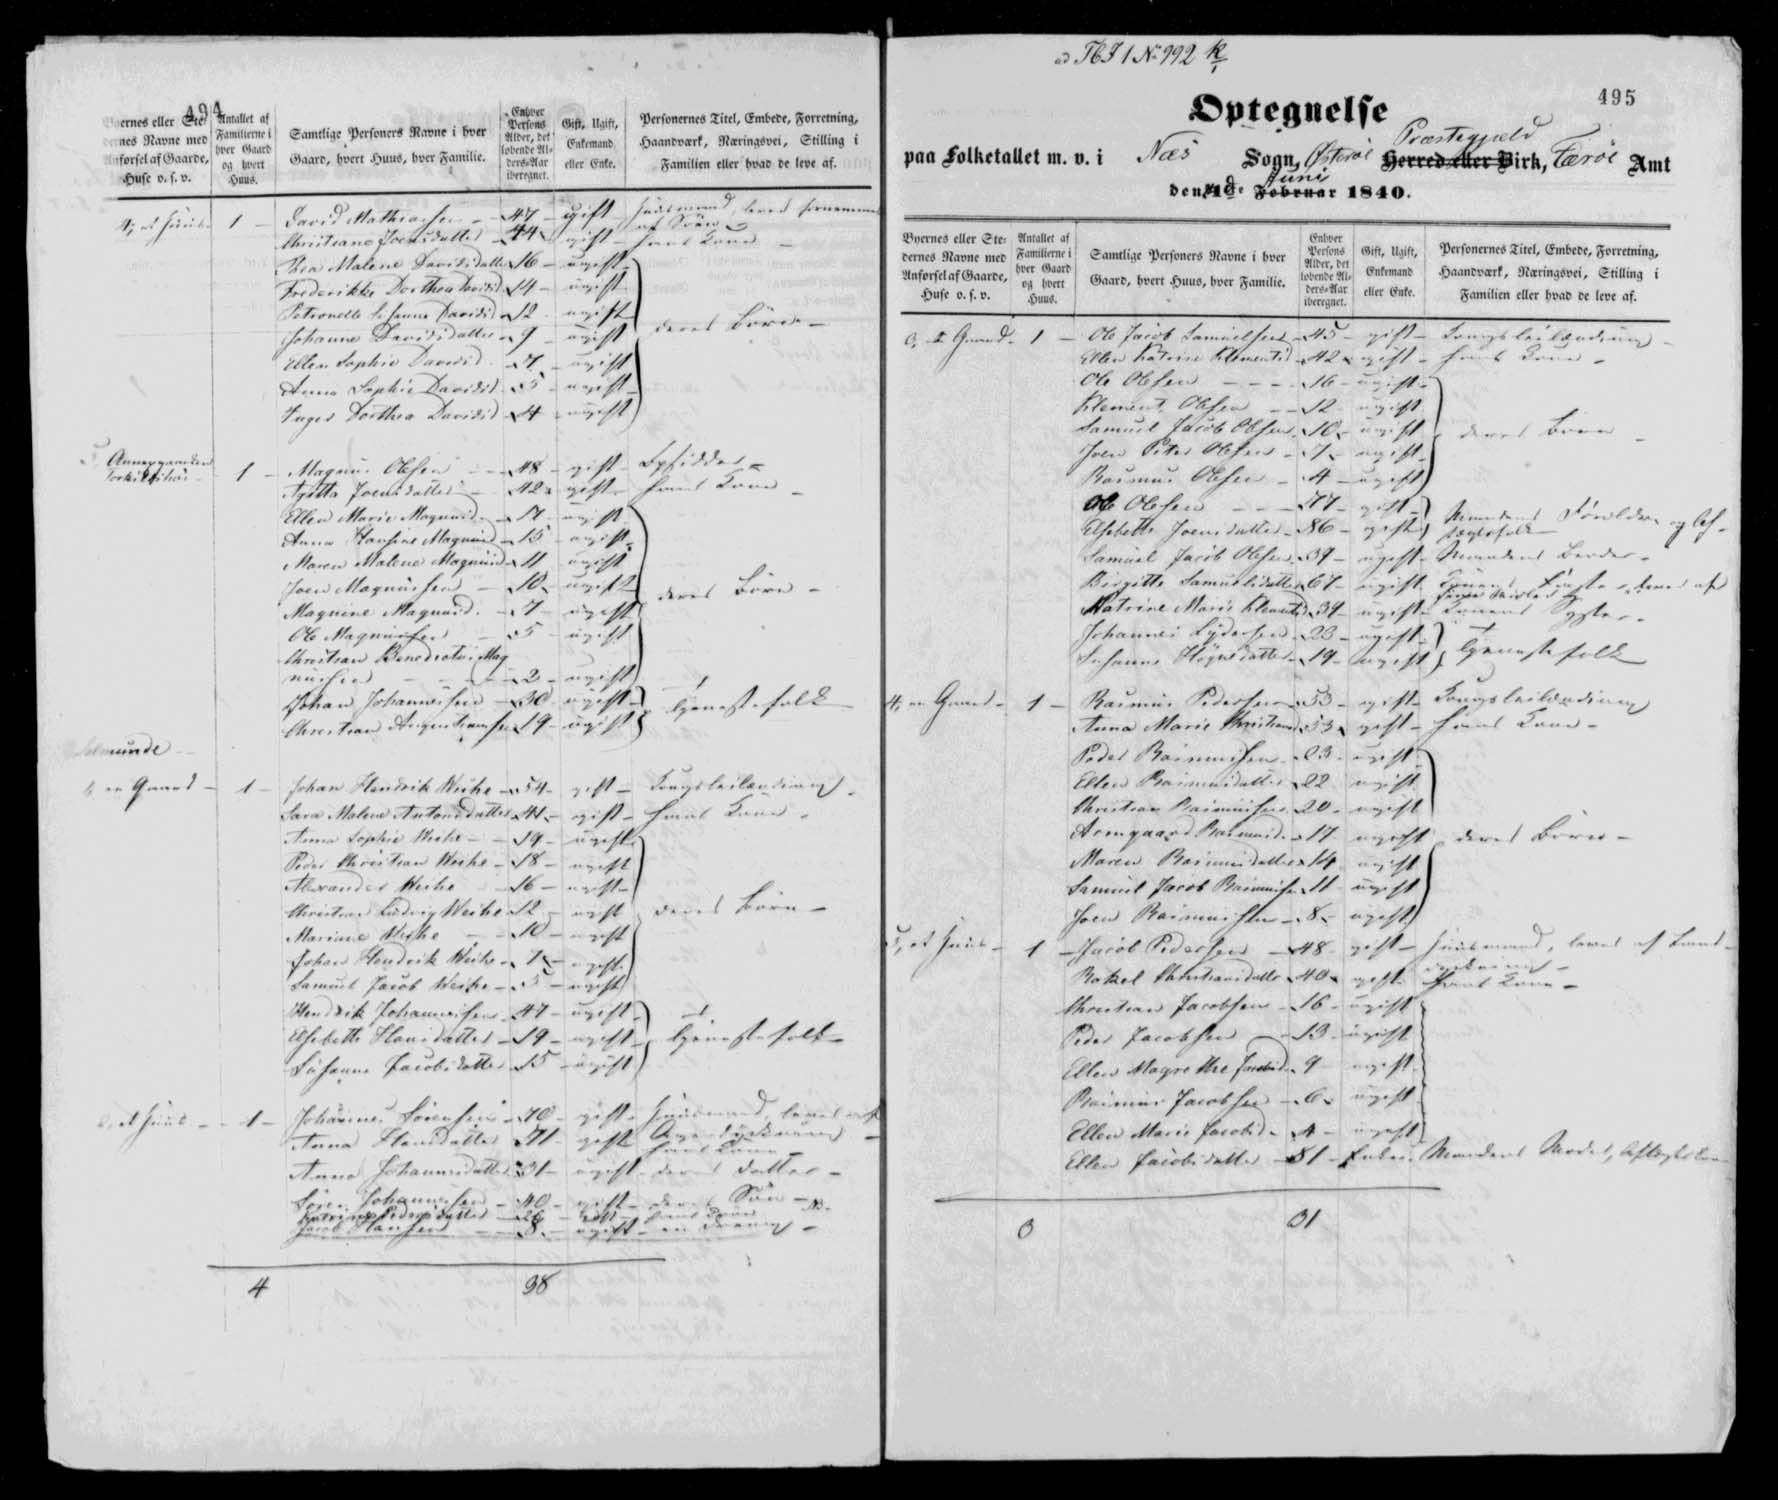 494
Byernes eller Ste-
dernes Navne med
Anførsel af Gaarde,
Huse o. s. v.
Antallet af
Familierne i
hver Gaard
og hvert
Huus.
Samtlige Personers Navne i hver
Gaard, hvert Huus, hver Familie.
Enhver
Persons
Alder, det
løbende Al-
ders-Aar
iberegnet.
Gift, Ugift,
Enkemand
eller Enke.
Personernes Titel, Embede, Forretning,
Haandværk, Næringsvei, Stilling i
Familien eller hvad de leve af.
4, et Huus 1 David Mathiassen 47 gift Huusmand, lever
Christiane Joensdatter 44 gift hans Kone
Thea Malene Davidsdatter 16 ugift
Frederikke Dorthea Davidsd 14 ugift
Petronelle Susanne Davidsd 12 ugift
Johanne Davidsdatter 9 ugift deres Børn
Ellen Sophie Davidsd 7 ugift
Anna Sophie Davidsd 5 ugift
Inger Dorthea Davidsd 4 ugift
5, 1 Magnus Olesen 48 gift Opsidder
Joensdatter 42 gift hans Kone
Ellen Marie Magnusd 17 ugift
Anna Hansine Magnusd 15 ugift
Maren Malene Magnusd 11 ugift
Joen Magnussen 10 ugift deres Børn
Magnine Magnusd. 7 ugift
Ole Magnussen 5 ugift
Christian Benedictus Mag
nussen 2 ugift
Johan Johannessen 30 ugift Tjenestefolk
Christian 19 ugift
en Gaard 1 Johan Hendrik Weihe 54 gift Kongsleilænding
Sara Malene Antonsdatter 41 gift hans Kone
Anna Sophie Weihe 19 ugift
Peder Christian Weihe 18 ugift
Alexander Weihe 16 ugift
Christian Ludvig Weihe 12 ugift deres Børn
Mariane Weihe 10 ugift
Johan Hendrik Weihe 7 ugift
Samuel Jacob Weihe 5 ugift
Hendrik Johannessen 47 ugift
Elsebeth Hansdatter 19 ugift Tjenestefolk
Susanne Jacobsdatter 15 ugift
2, et Huus 1 Johannes Sørensen 70 gift Huusmand, lever af
Anna Hansdatter 71 gift Agerdyrkning
hans Kone
Anna Johannesdatter 31 ugift deres Datter
Søren Johannessen 40 gift deres Søn
Katrine Pedersdatter 26 gift hans Kone
Jacob Hansen 8 ugift en Dreng
4 38
ad TBI 1 No 992 k/1
495
Optegnelse
paa Folketallet m. v. i Næs Sogn, Østerøe Præstegjæld Herred eller Birk, Færøe Amt
den 1de Juni Februar 1840.
Byernes eller Ste-
dernes Navne med
Anførsel af Gaarde,
Huse o. s. v.
Antallet af
Familierne i
hver Gaard
og hvert
Huus.
Samtlige Personers Navne i hver
Gaard, hvert Huus, hver Familie.
Enhver
Persons
Alder, det
løbende Al-
ders-Aar
iberegnet.
Gift, Ugift,
Enkemand
eller Enke.
Personernes Titel, Embede, Forretning,
Haandværk, Næringsvei, Stilling i
Familien eller hvad de leve af.
3, en Gaard 1 Ole Jacob Samuelsen 45 gift Kongsleilænding
Ellen Katrine Klementsd 42 gift hans Kone
Ole Olesen 16 ugift
Klement Olesen 12 ugift
Samuel Jacob Olesen 10 ugift deres Børn
Joen Peter Olesen 7 ugift
Rasmus Olesen 4 ugift
Ole Olesen 77 gift Mandens Forældre og Af-
Elsebeth Joensdatter 86 gift tægtsfolk
Samuel Jacob Olesen 39 ugift Mandens Broder
Birgitte Samuelsdatter 67 ugift
Katrine Marie Klementsd 39 ugift Konens Syster
Johannes Lydersen 23 ugift Tjenestefolk
Susanne Høgnedatter 19 ugift
4, en Gaard 1 Rasmus Pedersen 53 gift Kongsleilænding
Anna Marie Christiansd 53 gift hans Kone
Peder Rasmussen 23 ugift
Ellen Rasmusdatter 22 ugift
Christian Rasmussen 20 ugift
Armgaard Rasmusd. 17 ugift deres Børn
Maren Rasmusdatter 14 ugift
Samuel Jacob Rasmussen 11 ugift
Joen Rasmussen 8 ugift
5, et Huus 1 Jacob Pedersen 48 gift Huusmand, lever af Land-
Rakel Christiansdatter 40 gift hans Kone
Christian Jacobsen 16 ugift
Peder Jacobsen 13 ugift
Ellen Magrethe Jacobsd 9 ugift
Rasmus Jacobsen 6 ugift
Ellen Marie Jacobsd 4 ugift
Ellen Jacobsdatter 81 Enke Mandens Moder,
3 31